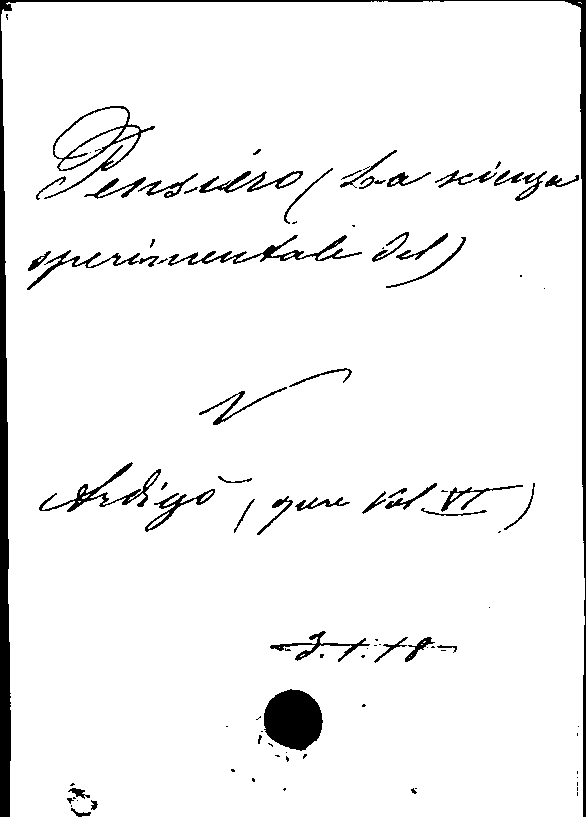 Pensiero (La scienza
sperimentale del)
V
Ardigò (opere Vol VI)
3.1.18